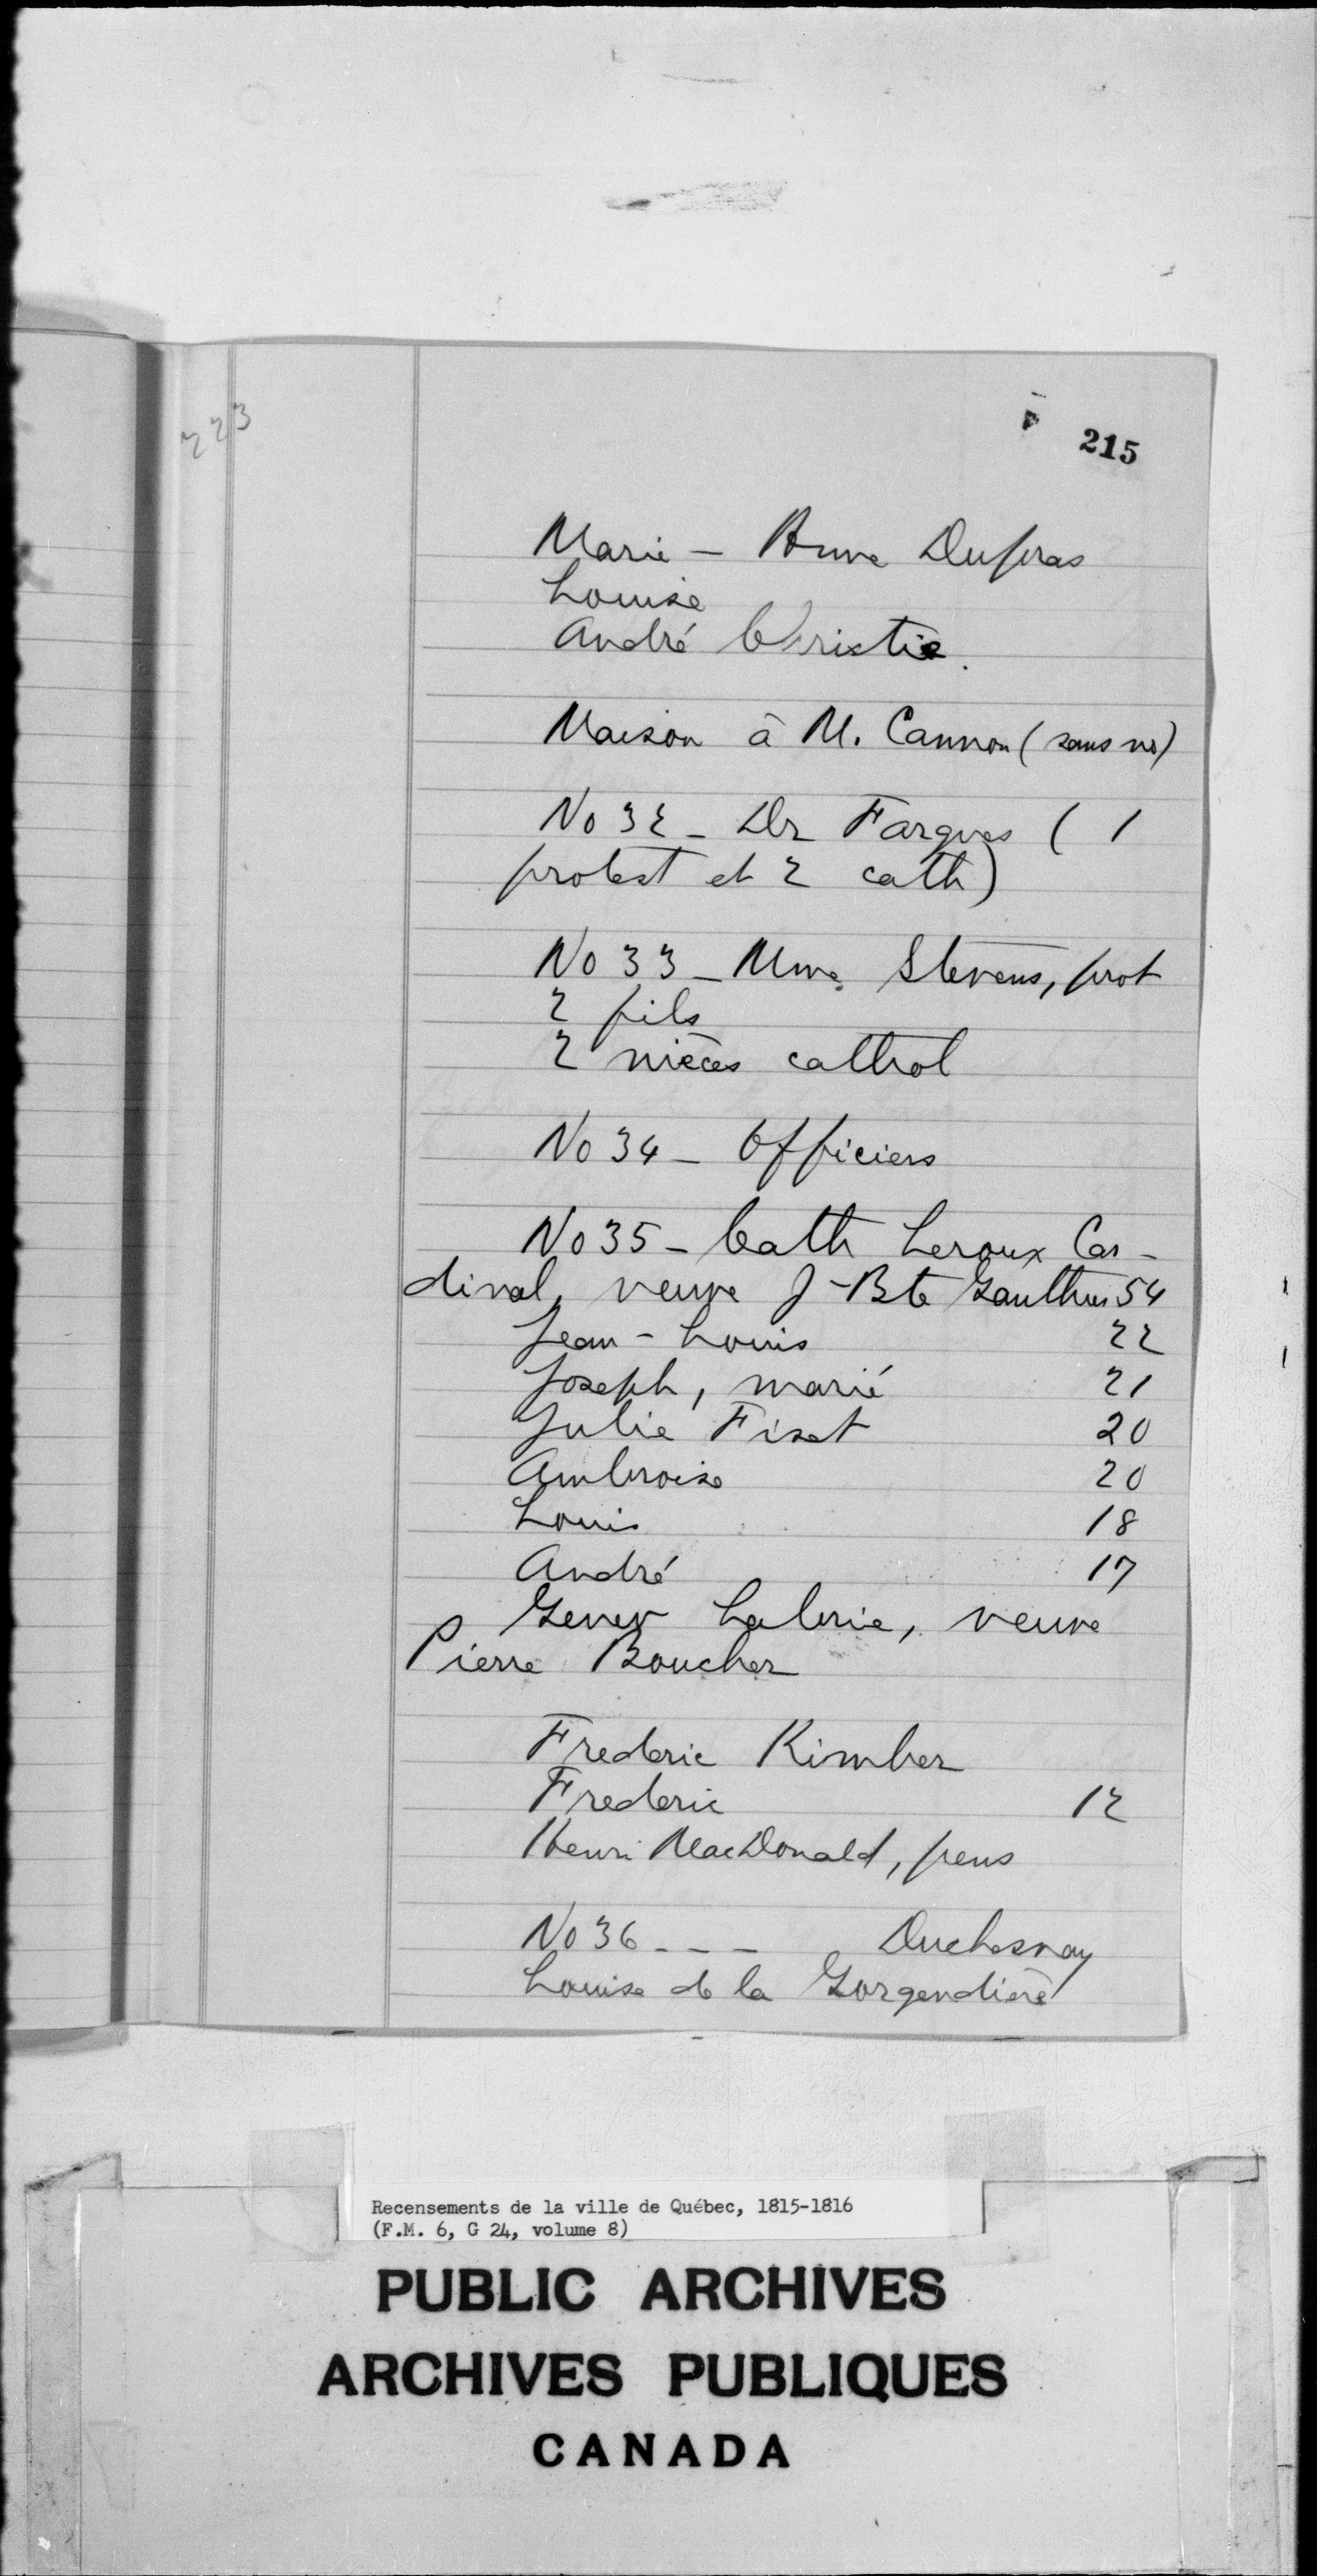 223
215
Marie - Anne Dupras
Louise
André Christie.
Maison à M. Cannon (sans no)
No 32 - Dr Fargues ( 1
protest et 2 cath)
No 33 - Mme Stevens, prot
2 fils
2 nièces cathol
No 34 - Officiers
No 35 - Cath Leroux Car-
dinal, veuve J-Bte Gauthier 54
Jean - Louis 22
Joseph, marié 21
Julie Fiset 20
Ambroise 20
Louis 18
André 17
Genev Labrie, veuve
Pierre Boucher
Frederic Kimber
Frederic 12
Henri MacDonald, pens
No 36 - - - Duchesnay
Louise de la Gorgendière
Recensements de la ville de Québec, 1815-1816
(F.M. 6, G 24, volume 8)
PUBLIC ARCHIVES
ARCHIVES PUBLIQUES
CANADA